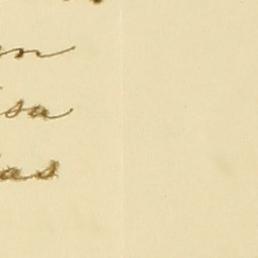 n
sa
as